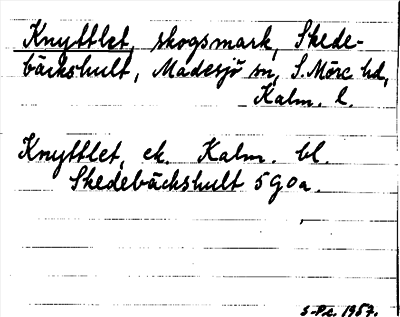 Knyttlet, skogsmark, Skede-
bäckshult, Madesjö sn, S. Möre hd,
Kalm. l.
Knyttlet, ek. Kalm. bl.
Skedebäckshult 5 G 0 a.
1957.